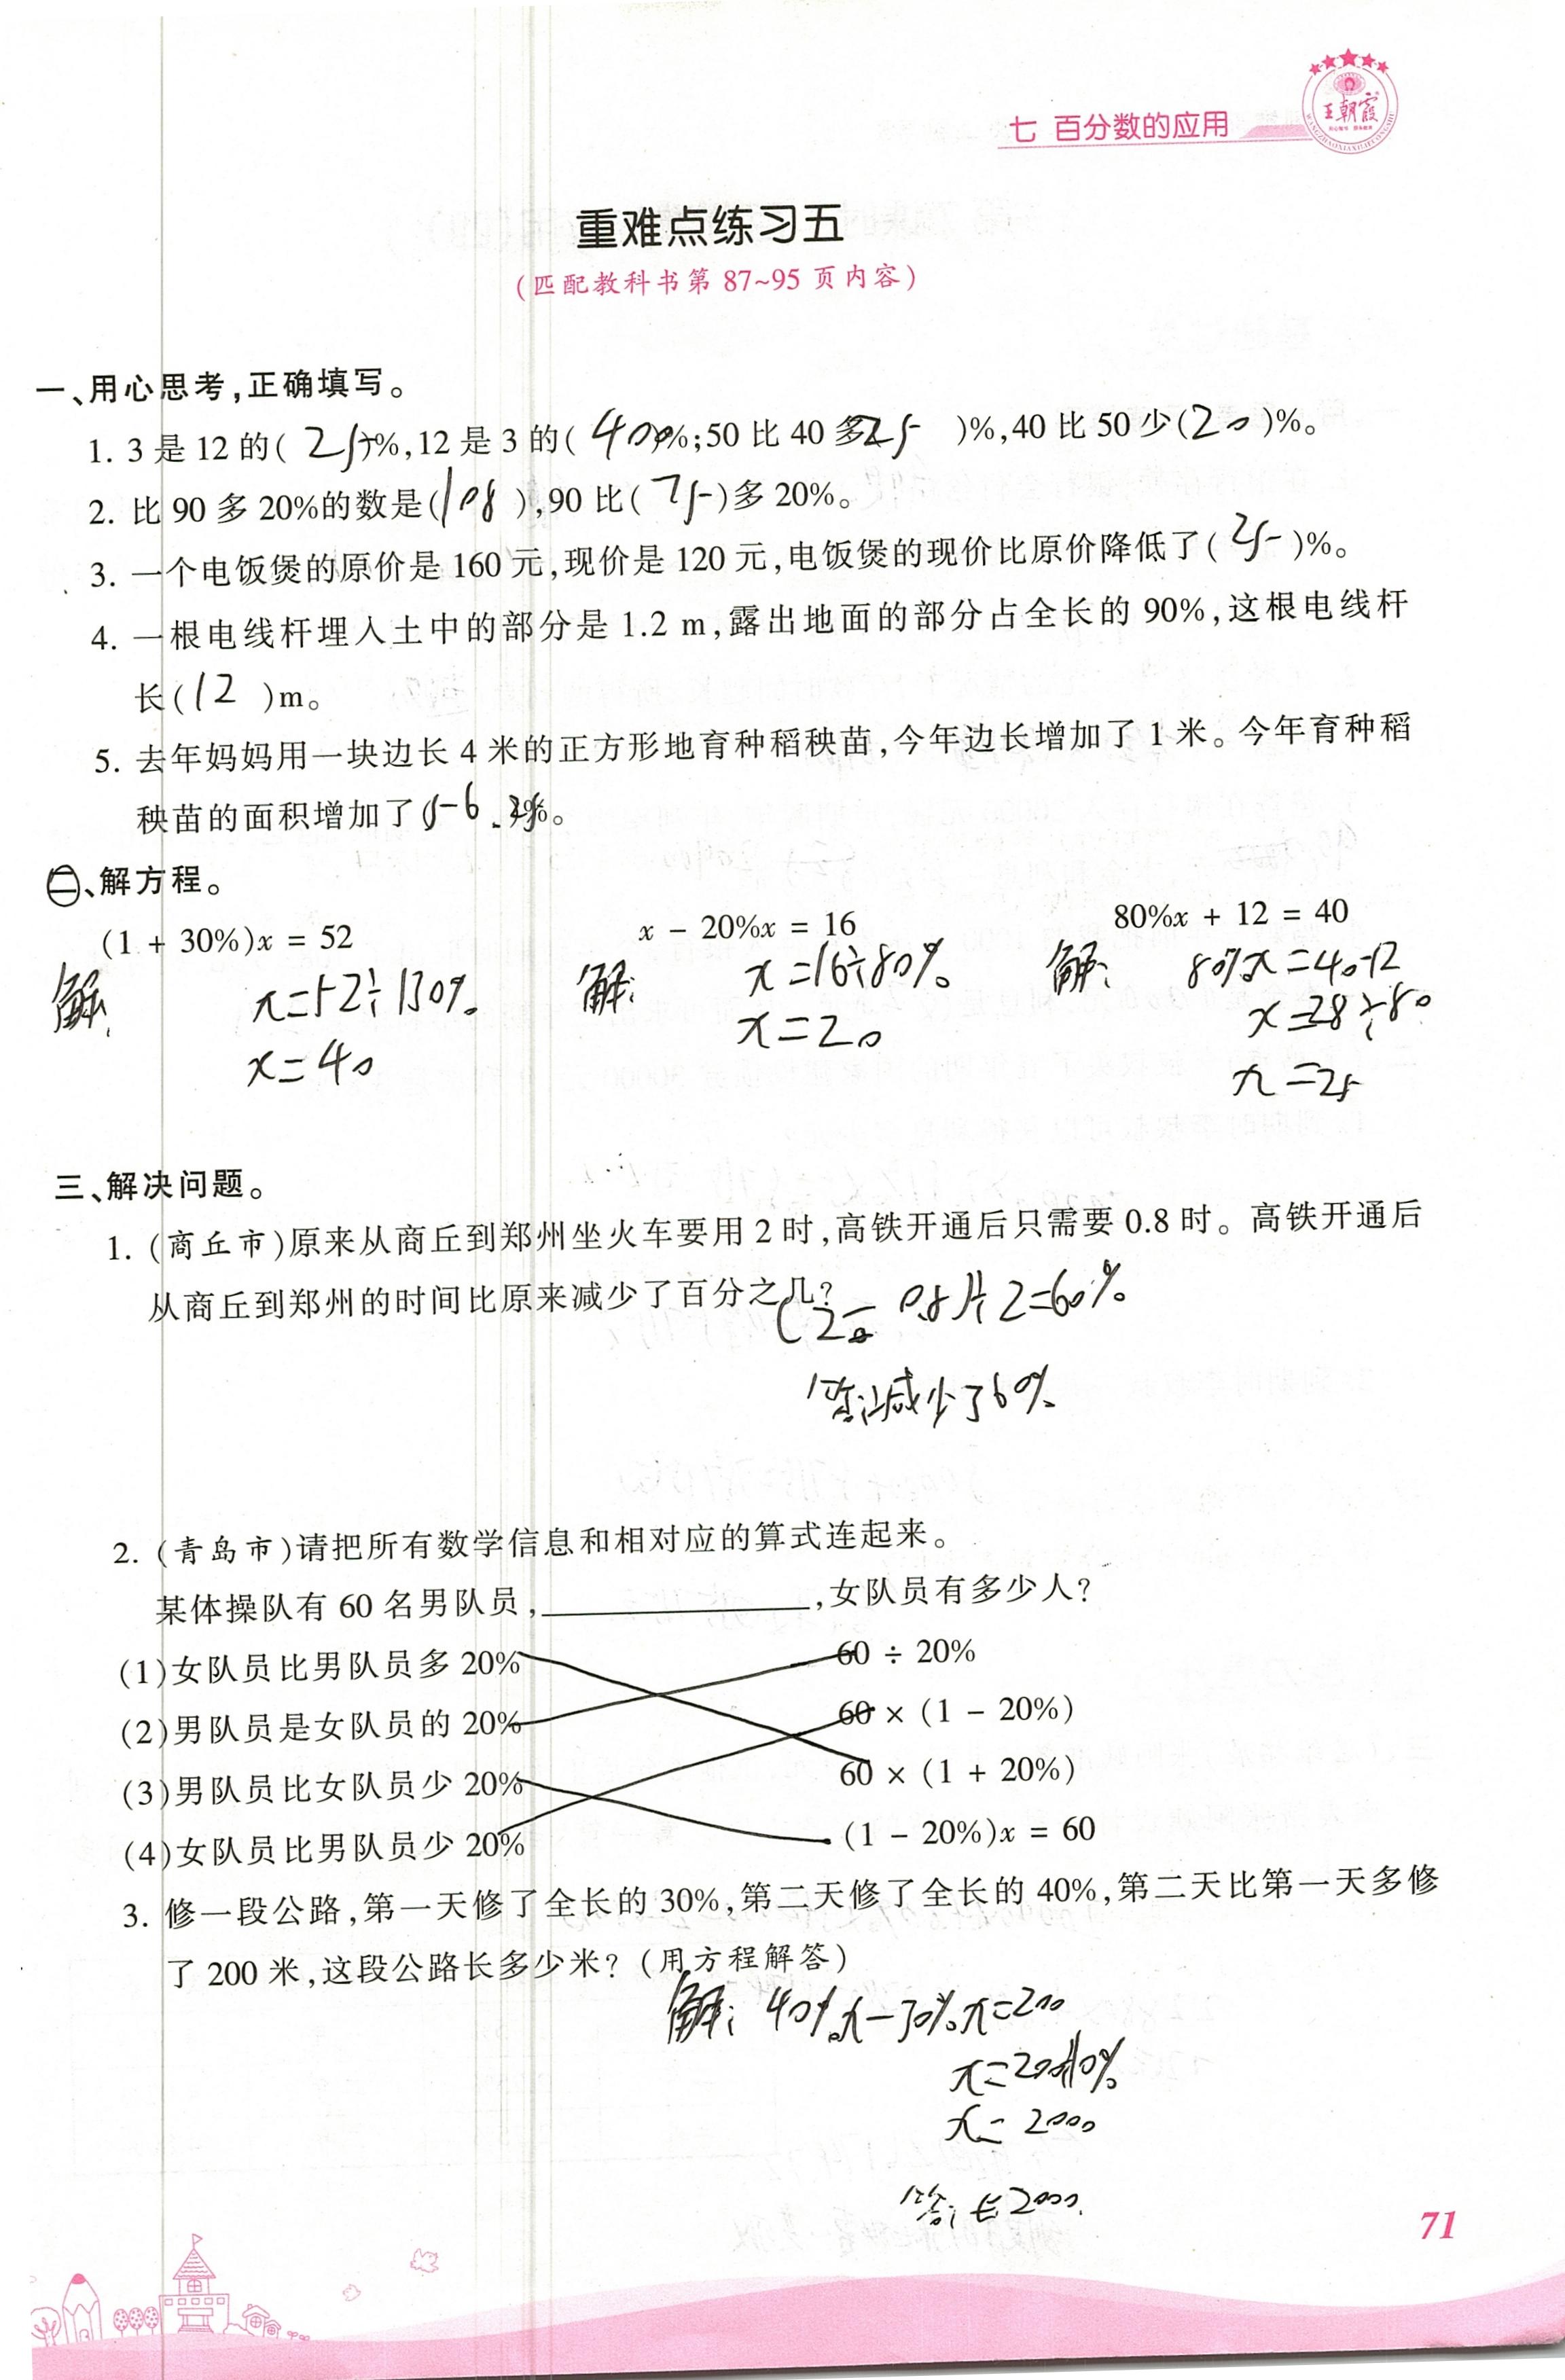 七 百分数的应用
王朝霞
重难点练习五
(匹配教科书第 87~95 页内容)
一、用心思考,正确填写。
1. 3 是 12 的( 25 )%,12 是 3 的( 400 )%;50 比 40 多( 25 )%,40 比 50 少(20)%。
2. 比 90 多 20%的数是(108),90 比(75)多 20%。
3. 一个电饭煲的原价是 160 元,现价是 120 元,电饭煲的现价比原价降低了( 25 )%。
4. 一根电线杆埋入土中的部分是 1.2 m,露出地面的部分占全长的 90%,这根电线杆
长(12 )m。
5. 去年妈妈用一块边长 4 米的正方形地育种稻秧苗,今年边长增加了 1 米。今年育种稻
秧苗的面积增加了(56.25)%。
二、解方程。
(1 + 30%)x = 52 x - 20%x = 16 80%x + 12 = 40
解: x=52÷130% 解: x=16÷80% 解: 80%x=40-12
x=40 x=20 x=28÷80
x=25
三、解决问题。
1. (商丘市)原来从商丘到郑州坐火车要用 2 时,高铁开通后只需要 0.8 时。高铁开通后
从商丘到郑州的时间比原来减少了百分之几?
(2-0.8)÷2=60%
答:减少了60%
2. (青岛市)请把所有数学信息和相对应的算式连起来。
某体操队有 60 名男队员,________,女队员有多少人?
(1)女队员比男队员多 20% 60 ÷ 20%
(2)男队员是女队员的 20% 60 × (1 - 20%)
(3)男队员比女队员少 20% 60 × (1 + 20%)
(4)女队员比男队员少 20% (1 - 20%)x = 60
3. 修一段公路,第一天修了全长的 30%,第二天修了全长的 40%,第二天比第一天多修
了 200 米,这段公路长多少米? (用方程解答)
解: 40%x-30%x=200
x=200÷10%
x=2000
答:长2000.
71